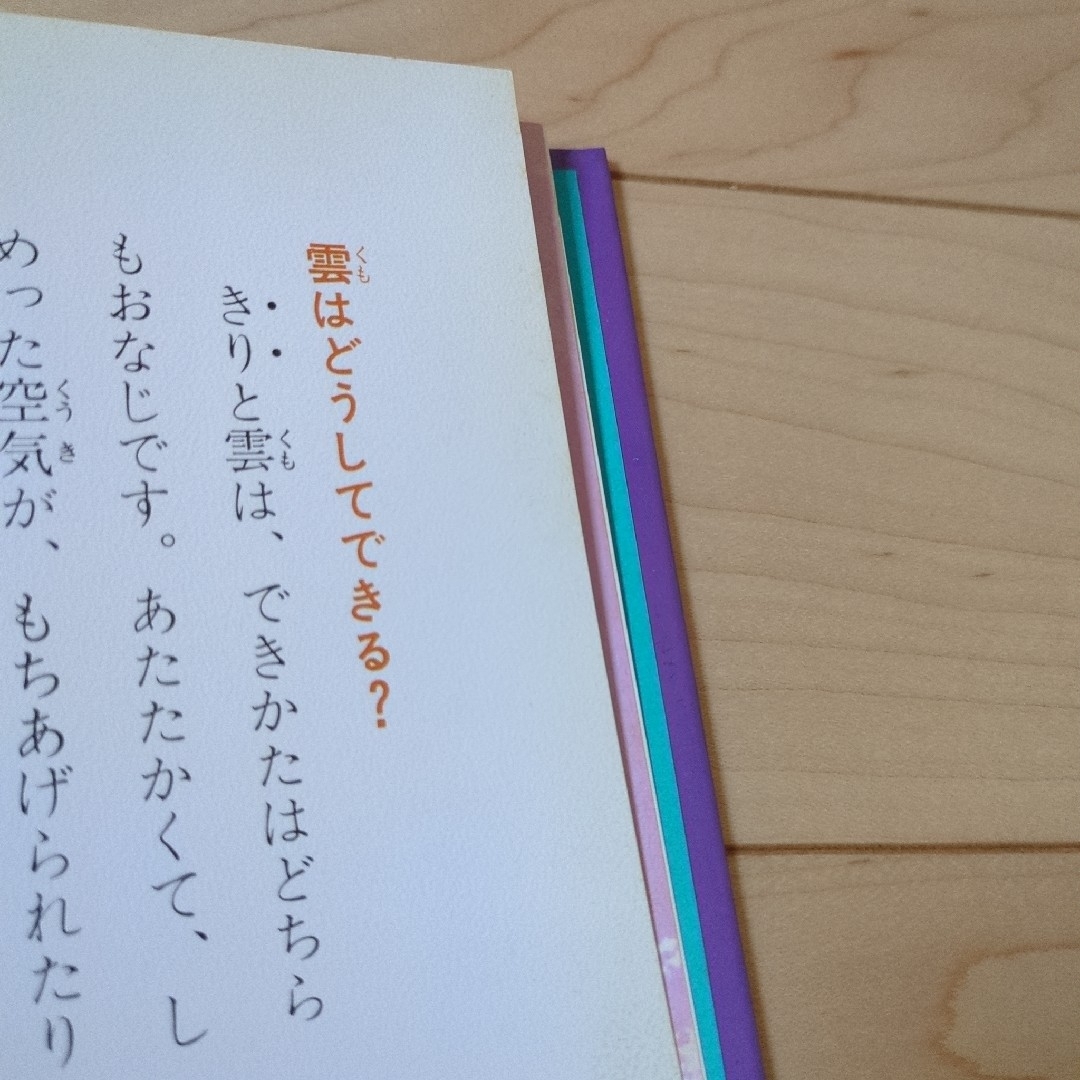 雲はどうしてできる?
きりと雲は、できかたはどちら
もおなじです。あたたかくて、し
めった空気が、もちあげられたり